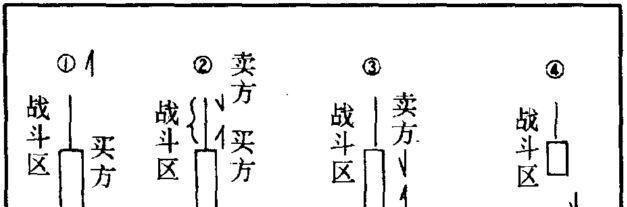 ①
战斗区
买方
②
战斗区
卖方
买方
③
战斗区
卖方
④
战斗区